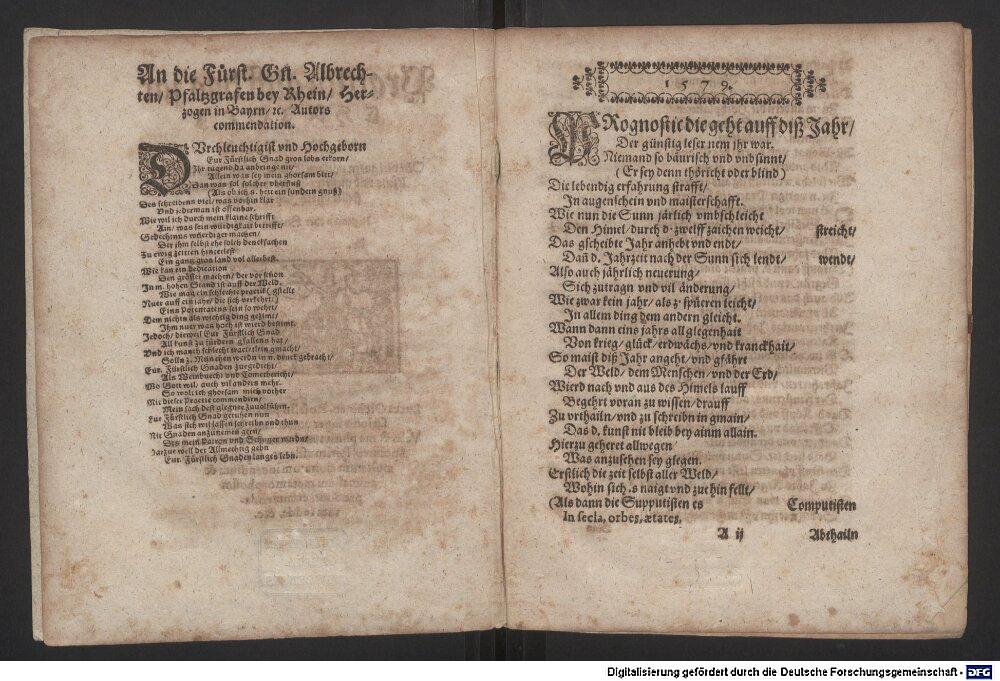 An die Fürst. Gn. Albrech-
ten/ Pfaltzgrafen bey Rhein/ Her-
zogen in Bayrn/ ꝛc. Autors
commendation.
DVrchleuchtigist vnd Hochgeborn
Eur Fürstlich Gnad gros lobs erkorn/
Ihr tugend da anbringe nit/
Allein was sey mein ghorsam bitt/
Dan was sol solcher vberfluß
(Als ob ich s. hett ein sundern gnuß)
Des schreibens viel/ was vorhin klar
Vnd jederman ist offenbar.
Wie wil ich durch mein klaine schrifft
Ain/ was sein würdigkait betrifft/
Gedechtnus würdiger machen/
Der ihm selbst ehe solch dencksachen
Zu ewig zeitten hinterlest
Ein gantz gros land vol allerbest.
Wie kan ein dedication
Den grösser machen/ der vor schon
In m. hohen Stand ist auff der Welt.
Wie mag ein schlechte practik (gstellt
Nuer auff ein jahr/ die sich verkehrt)
Eins Potentatens sein so wehrt/
Dem nichts als wichtig ding gezimt/
Ihm nuer was hoch ist wierd bestimt.
Jedoch/ dieweil Eur Fürstlich Gnad
All kunst zu fürdern gfallens hat/
Vnd ich manch schlecht tractetlein gmacht/
Solln z. München werdn in n. druck gebracht/
Eur. Fürstlich Gnaden zuegericht/
Als Weinbuech vnd Cometbericht/
Wo Gott wil/ auch vil anders mehr.
So wolt ich ghorsam mich vorher
Mit dieser Practic commendirn/
Mein sach dest glegner zuuolführn.
Eur Fürstlich Gnad geruhen nun
Was sich wil lassen schreibn vnd thun
Mit Gnaden anzunemen gern/
Des mein Patron vnd Schutzer werdn/
Darzue woll der Allmechtig gebn
Eur. Fürstlich Gnaden langes lebn.
1579.
PRognostic die geht auff diß Jahr/
Der günstig leser nem jhr war.
Niemand so bäurisch vnd vnbsinnt/
(Er sey denn thöricht oder blind)
Die lebendig erfahrung strafft/
In augenschein vnd maisterschafft.
Wie nun die Sunn järlich vmbschleicht
Den Himel/ durch d. zwelff zaichen weicht/ streicht/
Das gscheibte Jahr anhebt vnd endt/
Dañ d. Jahrzeit nach der Sunn sich lendt/ wendt/
Also auch jährlich neuerung/
Sich zutragn vnd vil änderung/
Wie zwar kein jahr/ als z. spüeren leicht/
In allem ding dem andern gleicht.
Wann dann eins jahrs all glegenhait
Von krieg/ glück/ erdwächs/ vnd kranckhait/
So maist diß Jahr angeht/ vnd gfährt
Der Weld/ dem Menschen/ vnd der Erd/
Wierd nach vnd aus des Himels lauff
Begehrt voran zu wissen/ drauff
Zu vrthailn/ vnd zu schreibn in gmain/
Das d. kunst nit bleib bey ainm allain.
Hierzu geheret allwegen
Was anzusehen sey glegen.
Erstlich die zeit selbst aller Weld/
Wohin sich .s naigt vnd zue hin fellt/
(Als dann die Supputisten es Computisten
In secla, orbes, ætates,
A ij Abthailn
Digitalisierung gefördert durch die Deutsche Forschungsgemeinschaft - DFG